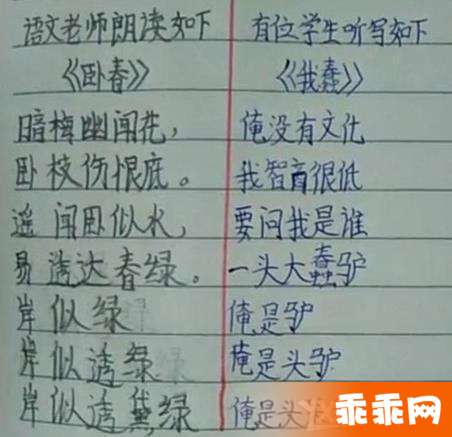 语文老师朗读如下
《卧春》
暗梅幽闻花，
卧枝伤恨底。
遥闻卧似水，
易透达春绿。
岸似绿
岸似透绿
岸似透黛绿
有位学生听写如下
《我蠢》
俺没有文化
我智商很低
要问我是谁
一头大蠢驴
俺是驴
俺是头驴
俺是头
乖乖网